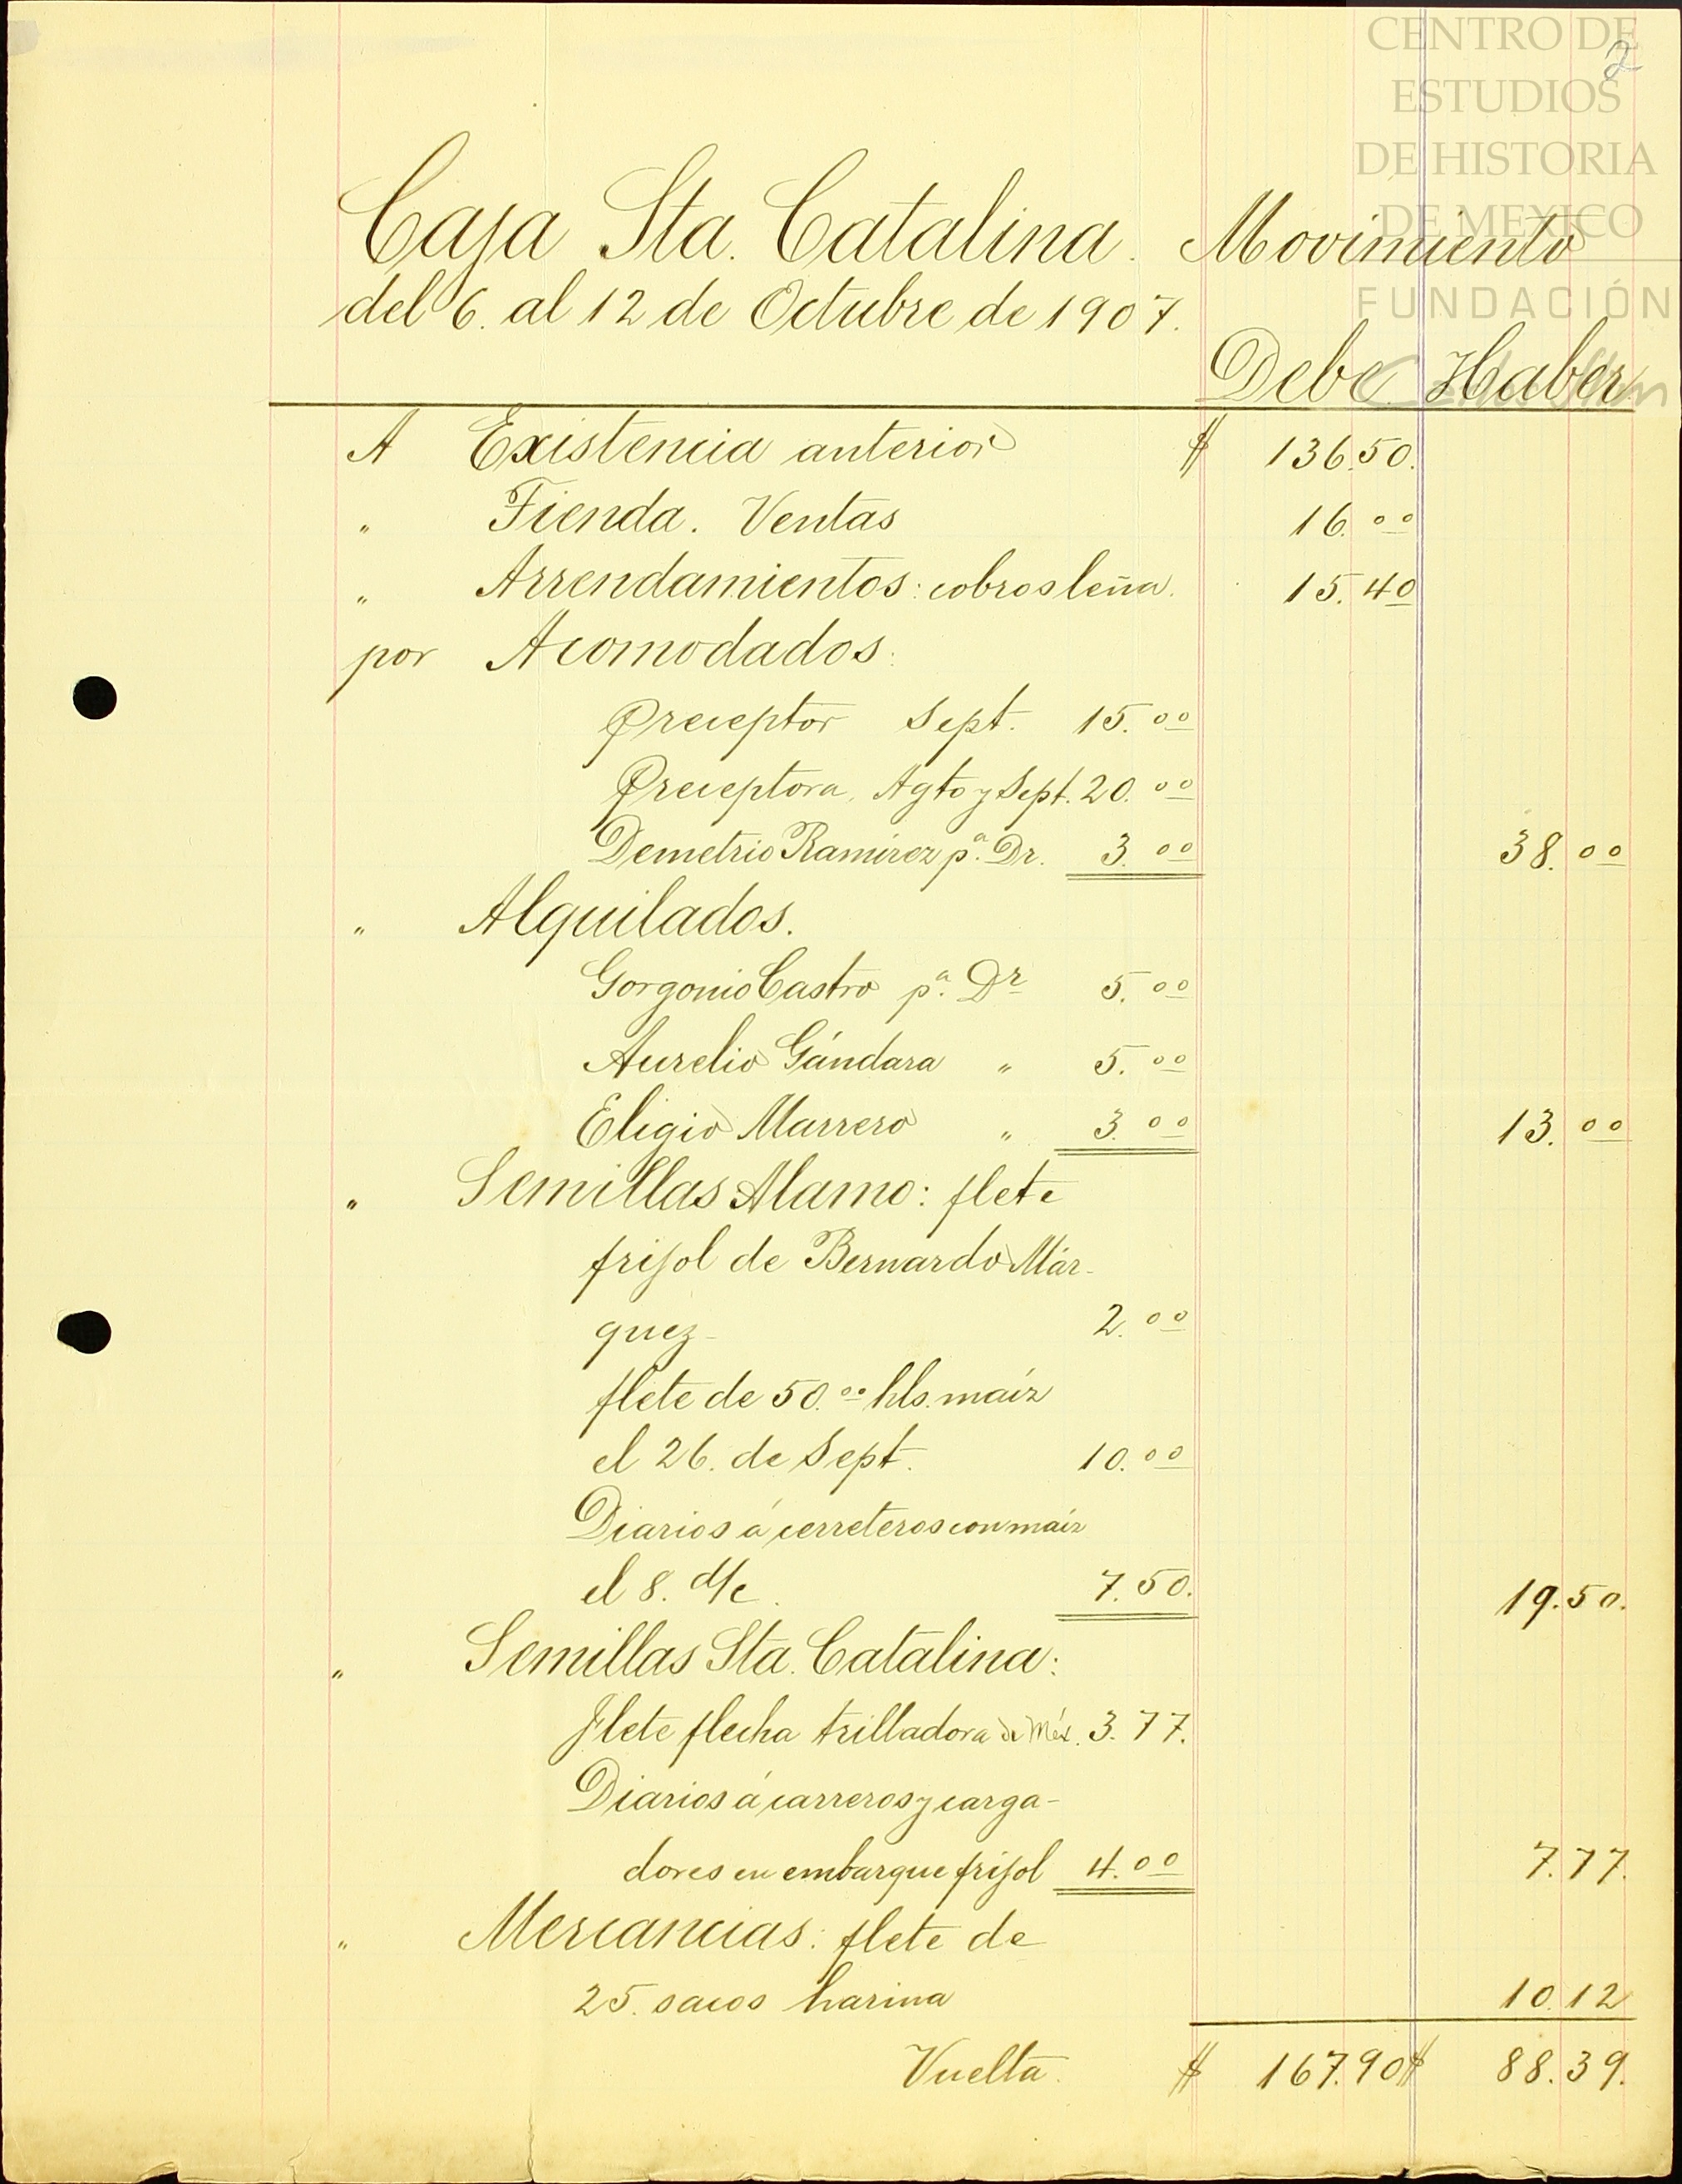 CENTRO DE
ESTUDIOS
DE HISTORIA
DE MEXICO
FUNDACIÓN
2
Caja Sta. Catalina. Movimiento
del 6. al 12 de Octubre de 1907.
Debe Haber
A Existencia anterior $ 136.50.
" Tienda. Ventas 16.00
" Arrendamientos: cobros leña. 15.40
por Acomodados:
Preceptor Sept. 15.00
Preceptora, Agto y Sept. 20.00
Demetrio Ramírez pa. Dr. 3.00 38.00
" Alquilados.
Gorgonio Castro pa. Dr 5.00
Aurelio Gándara " 5.00
Eligio Marrero " 3.00 13.00
" Semillas Alamo: flete
frijol de Bernardo Már-
quez 2.00
flete de 50.00 hls. maíz
el 26. de Sept. 10.00
Diarios á cerreteros con maíz
el 8. d/c. 7.50. 19.50.
" Semillas Sta. Catalina:
Flete flecha trilladora de Méx. 3.77.
Diarios á carreros y carga-
dores en embarque frijol 4.00 7.77.
" Mercancias: flete de
25. sacos harina 10.12
Vuelta. $ 167.90 $ 88.39.